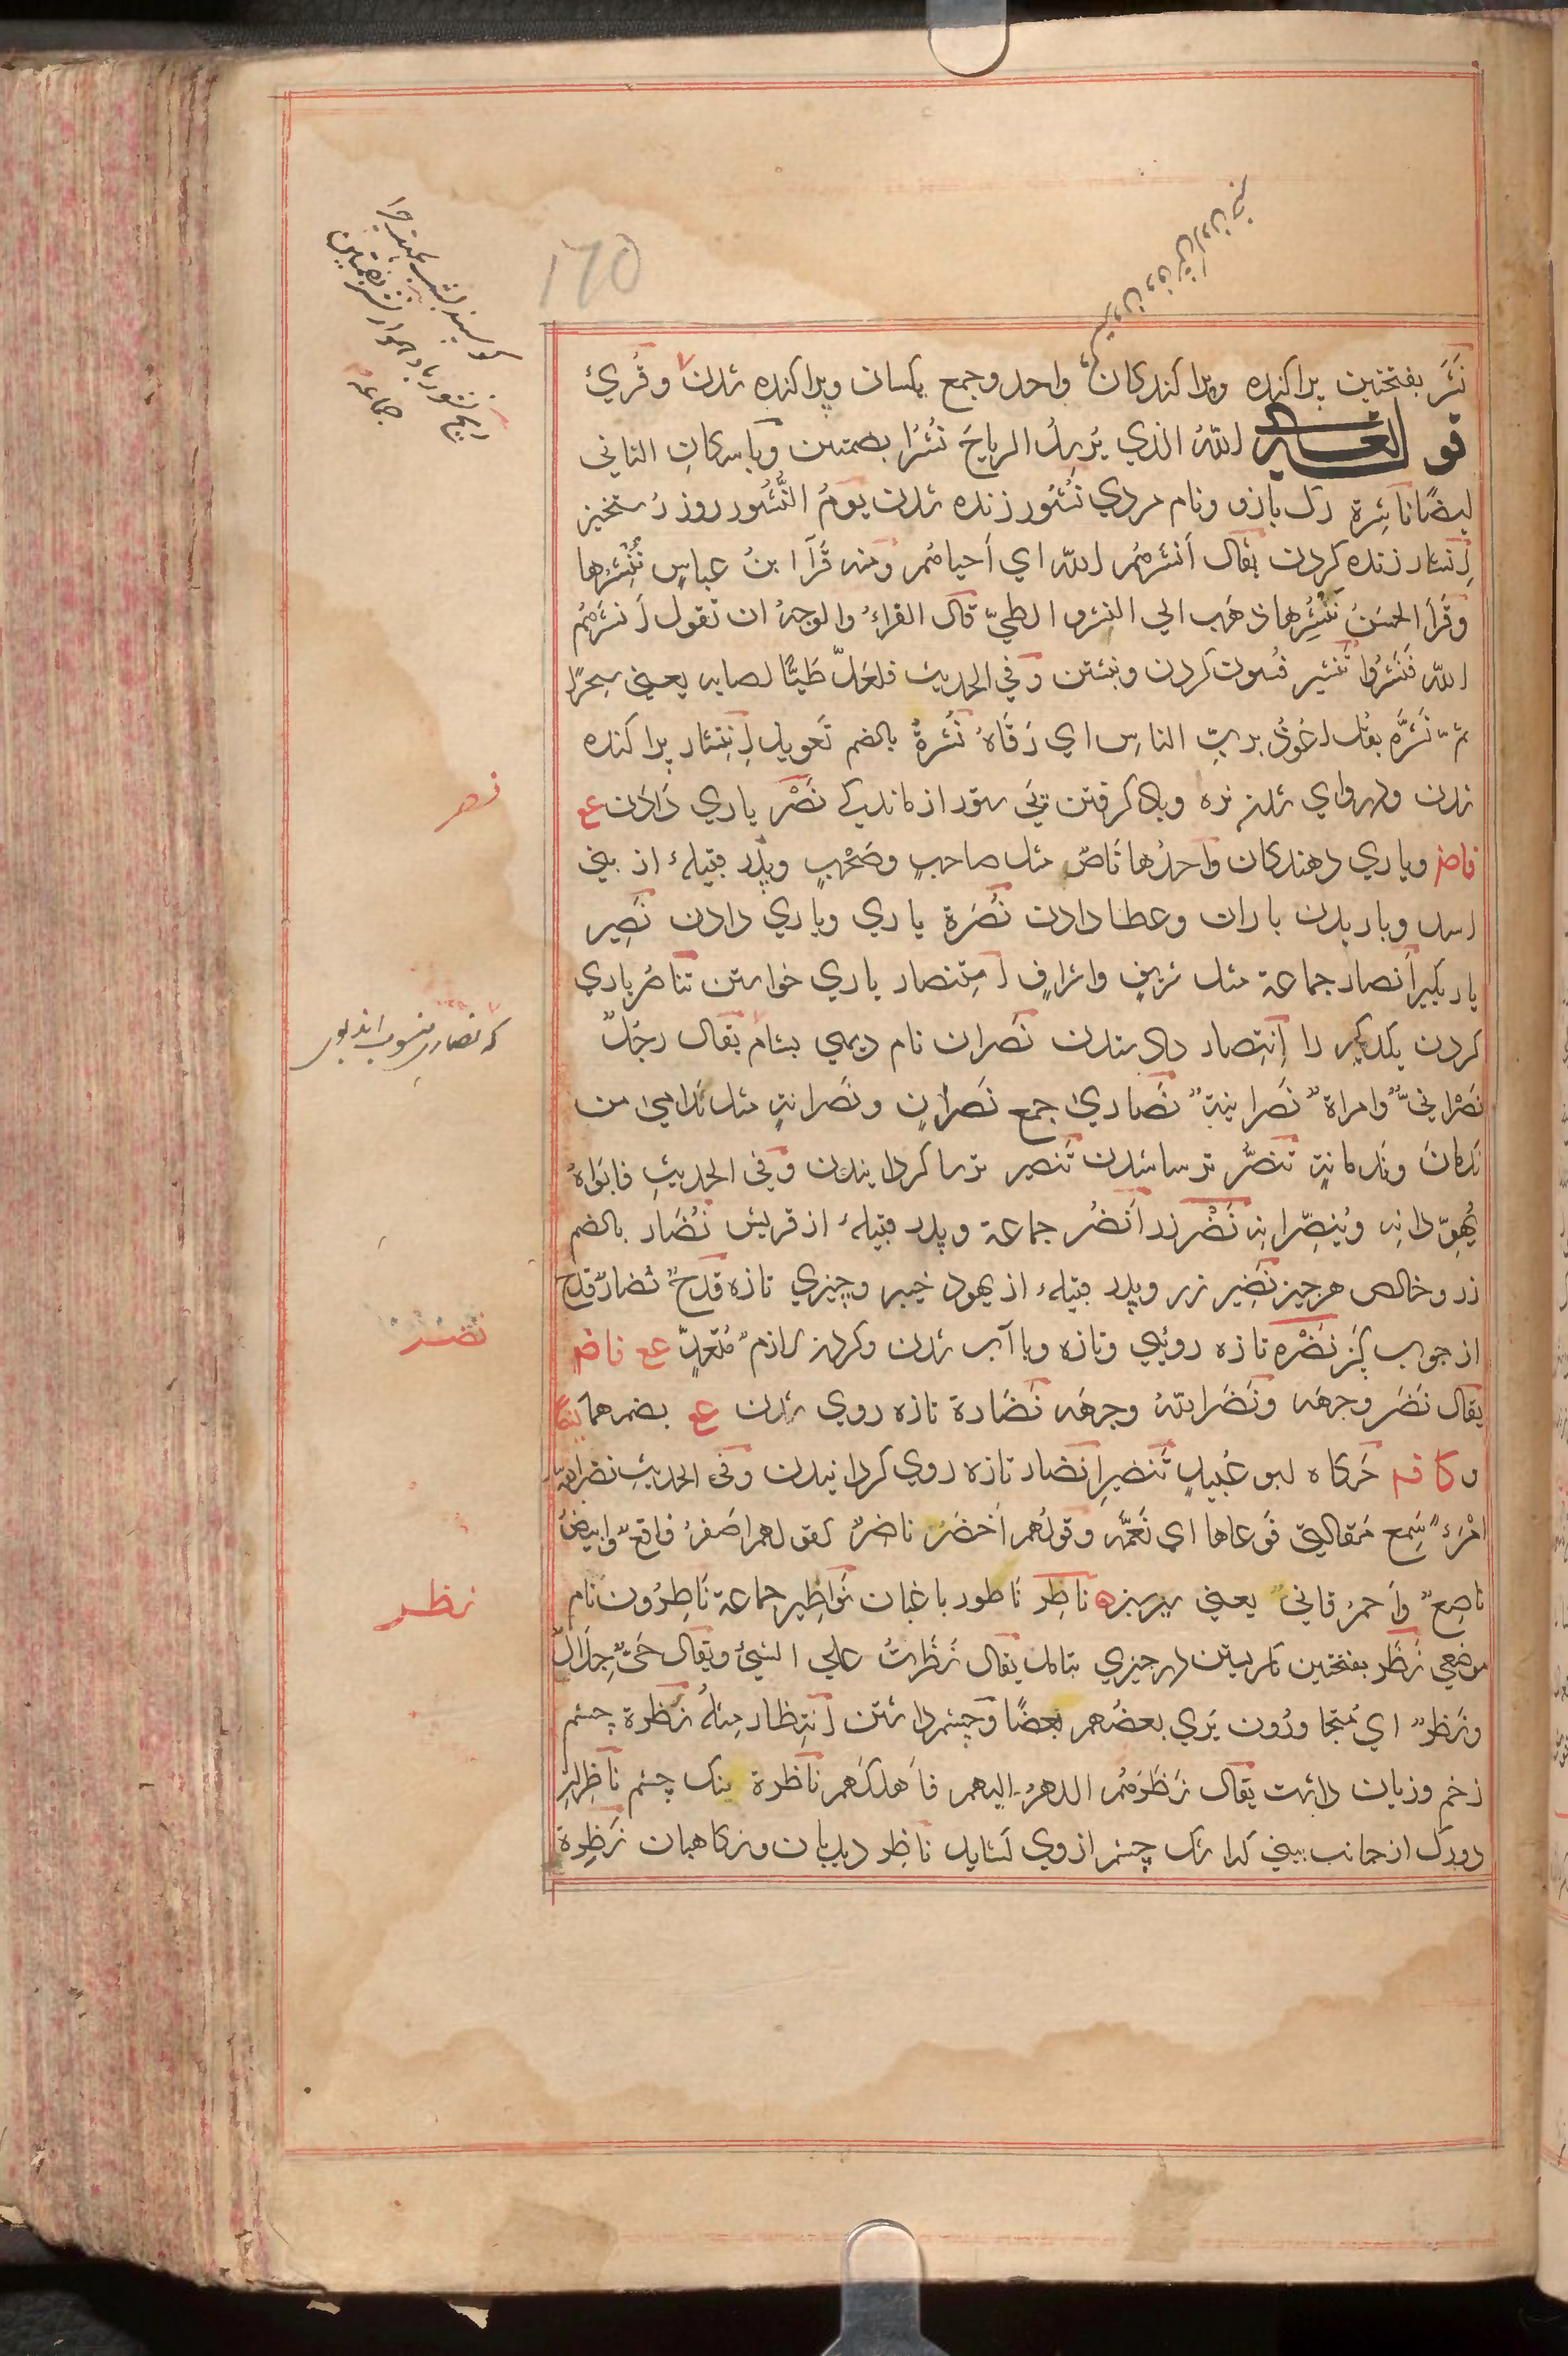 170
نَشَر بفتحتین پراکنده و پراکندگان واحد و جمع یکسان و پراکنده شدن وقُرئ
قوله تعالى اللّهُ الذي يُرسِلُ الرياحَ نُشُرًا بضمتين وباسكانِ الثاني
ايضًا ناشِرة رک بازو ونام مردي نُشُور زنده شدن يومُ النُّشُور روز رستخيز
اِنشار زنده کردن يقال اَنشرهُم اللّه اي اَحياهُم ومنه قَرَأ ابنُ عباسٍ نُنْشِرُها
وقَرَأ الحسَنُ نَنْشُرُها ذهَب الي النشر والطيّ قال الفراءُ والوجهُ ان تقول اَنشَرَهُم
اللّه فنَشَرُوا تَنشير فسون کردن ونبشتن وفي الحديث فلعَلّ طَبًّا اصابه يعني سِحرًا
ثمّ نَشَّرَه بقُل اعُوذُ بربِّ الناسِ اي رَقَاهُ نُشرةٌ بالضم تَعويذ اِنتِشار پراکنده
شدن و باد گرفتن پَي ستور از ماندگي نَصْر ياري دَادَن ع
ناصر وياري دهندگان واحدُها نَاصرٌ مثل صاحبٍ وصَحْبٍ وپدر قبيلهٔ از بني
اسد وباريدن باران وعطا دادن نُصرَة ياري وياري دادن نَصِير
ياريگر اَنصار جماعة مثل شريفٍ واشرافٍ اِستِنصار ياري خواستن تَناصُر ياري
کردن يکديگر را اِنتِصار داد ستدن نَصران نام ديهي بشام يقال رجُلٌ
نَصْرانيٌّ وامراةٌ نَصرانيّةٌ نَصاريٰ جمع نَصرانٍ ونَصرانةٍ مثل نَدَاميٰ من
نَدمانَ ونَدمانةٍ تنَصُّر ترسا شدن تَنصير ترسا گردانيدن وفي الحديثِ فابَوَاهُ
يُهوِّدانِه ويُنصِّرانِه نَضْر زر اَنضُر جماعة وپدر قبيلهٔ از قريش نُضَار بالضم
زر وخالص هر چيز نَضِير زر وپدر قبيلهٔ از يهود خيبر وچيزي تازه قدَحٌ نُضارٌ قدح
از چوب گز نَضْرة تازه روئي وتازه وباآب شدن وکردن لازمٌ مُتعدٍّ ع ع ناضر
يقال نَضَر وجهَه ونَضَر اللهُ وجهَه نَضَارة تازه روي شدن ع بضمهما ايضًا
و حَرکاه ابو عُبيدٍ تَنضير اِنضار تازه روي گردانيدن وفي الحديثِ نضّر اللّهُ
امْرَءً سَمِع مَقالتي فوَعاها اي نَعّمَه وقولُهم اَخضَرُ ناضرٌ کقولهم اصفرُ فاقعٌ وابيضُ
ناصِعٌ واَحمرُ قاني يعني سبز سبزه ناظِر ناطور باغبان نَواطِير جماعة نَاطِرُون نام
موضعي نَظَر بفتحتين نگريستن در چيزي بتامل يقال نَظَرتُ علي الشيئ ويقال حَيٌّ حِلَالٌ
ونَظَرٌ اي مُتجاوِرُون يَري بعضُهم بعضًا وچشم داشتن اِنتِظار مِثلُه نَظرة چشم
زخم وزيان داشت يقال نَظَرَهُم الدهرُ اليهم فاَهلَکهم ناظرة نيک چشم ناظِران
دو رگ از جانب بيني که اشک چشم از وي آيد ناظِر ديدبان ونگاهبان نَظِرة
نصر
نضر
نظر